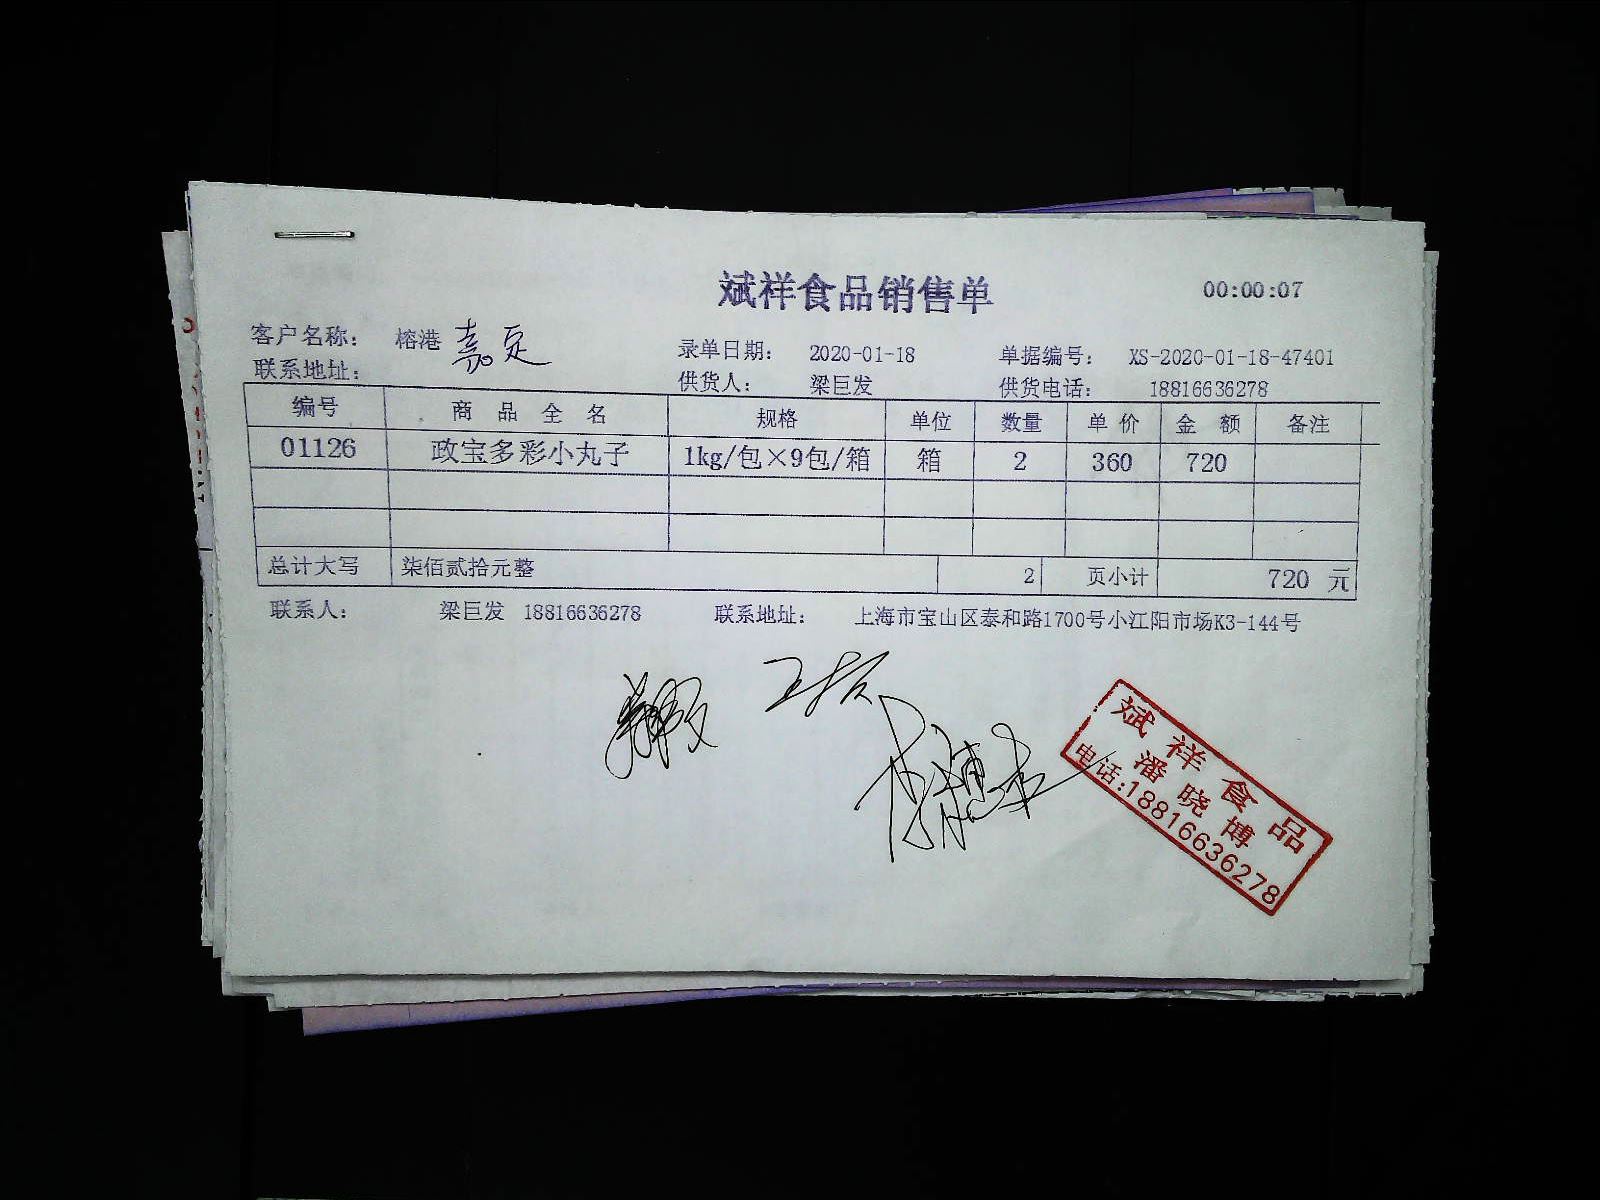 斌祥食品销售单 00:00:07
客户名称： 榕港 嘉定 录单日期： 2020-01-18 单据编号： XS-2020-01-18-47401
联系地址： 供货人： 梁巨发 供货电话： 18816636278
编号 商品全名 规格 单位 数量 单价 金额 备注
01126 政宝多彩小丸子 1kg/包×9包/箱 箱 2 360 720
总计大写 柒佰贰拾元整 2 页小计 720 元
联系人： 梁巨发 18816636278 联系地址： 上海市宝山区泰和路1700号小江阳市场K3-144号
斌祥食品
潘晓博
电话:18816636278